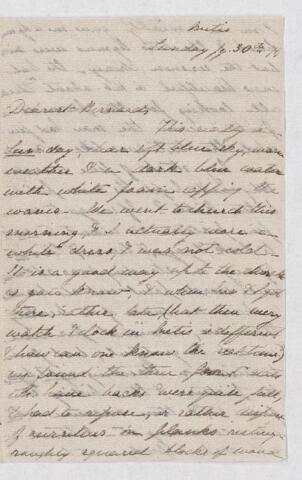 Metis
Sunday Jy. 30th
Dearest Bernard,
This really is a
Sun day, clear soft blue sky, warm
weather & a dark blue water
with white foam capping the
waves. We went to church this
morning, & I actually wore a
white dress, & was not cold.
It is a good way up to the church
as you know, & when we got
there, rather late, (but then every
watch & clock in Metis is different
& how can one know the real time)
we found the
the backs were quite full
& had to repose, or rather
of ourselves on planks resting
roughly squared blocks of wood